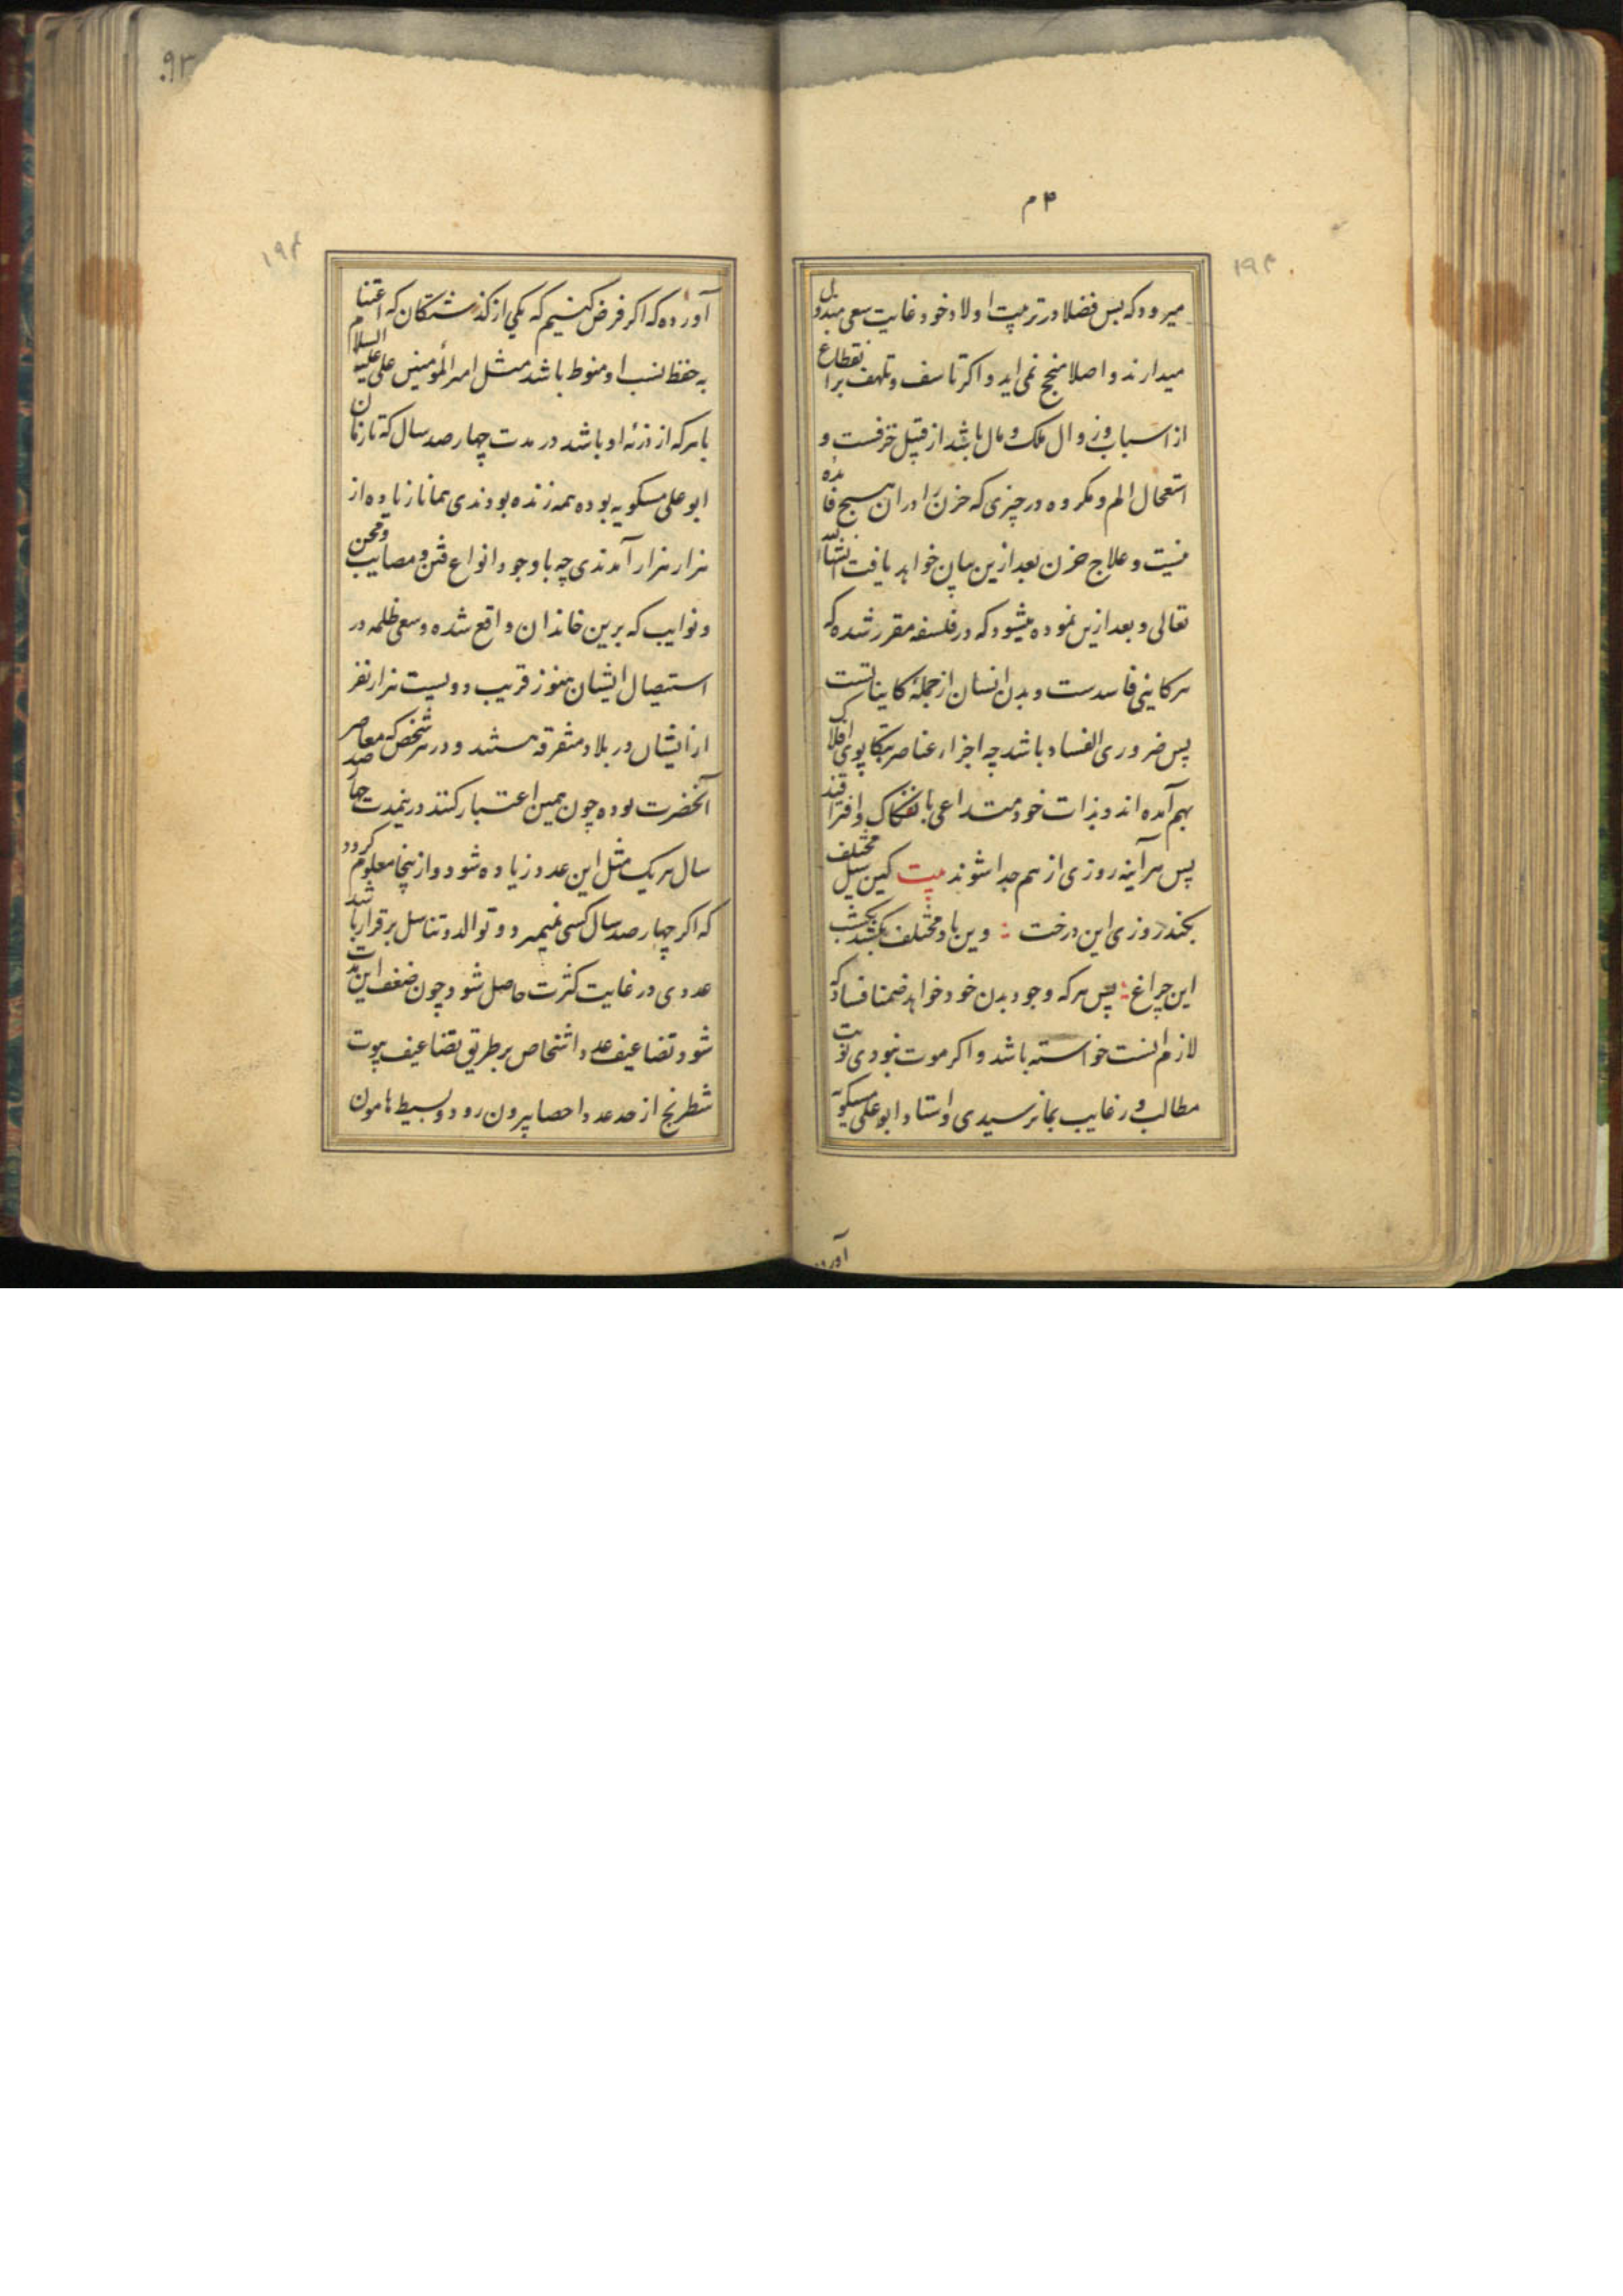 ۴ م
میرود که بس فضلا در تربیت اولاد خود غایت سعی مبذول
میدارند و اصلا منجح نمی اید و اکر تاسف و تلهف بر انقطاع
از اسباب و زوال ملک و مال باشد از قبیل خرفست و
استعجال الم و مکروه در چیزی که حزن را در ان هیچ فایده
نیست و علاج حزن بعد ازین بیان خواهد یافت انشاالله
تعالی و بعد ازین نموده میشود که در فلسفه مقرر شده که
هر کاینی فاسدست و بدن انسان از جملهٔ کایناتست
پس ضروری الفساد باشد چه اجزاء عناصر بتکاپوی افلاک
بهم آمده اند و بذات خود متداعی بانفکاک و افتراقند
پس هر آینه روزی از هم جدا شوند بیت کین سیل مختلف
بکند روزی این درخت : وین باد مختلف بکشد یکشب
این چراغ : پس هر که وجود بدن خود خواهد ضمنا فساد که
لازم انست خواسته باشد و اکر موت نبودی نوبت
مطالب و رغایب بما نرسیدی و استاد ابوعلی مسکویه
آورده
۱۹۴
آورده که اکر فرض کنیم که یکی از کذشتکان که اعتنا
به حفظ نسب او منوط باشد مثل امیر المؤمنین علی علیه السلام
با هر که از ذریهٔ او باشد در مدت چهار صد سال که تا زمان
ابو علی مسکویه بوده همه زنده بودندی همانا زیاده از
هزار هزار آمدندی چه با وجود انواع فتن و مصایب و محن
و نوایب که برین خاندان واقع شده و سعی ظلمه در
استیصال ایشان هنوز قریب دویست هزار نفر
از ایشان در بلاد متفرقه هستند و در هر شخص که معاصر
آنحضرت بوده چون همین اعتبار کنند درینمدت چهار صد
سال هر یک مثل این عدد زیاده شود و از ینجا معلوم کردد
که اکر چهار صد سال کسی نمیرد و توالد و تناسل برقرار باشد
عددی در غایت کثرت حاصل شود چون ضعف این مدت
شود تضاعیف عدد اشخاص بر طریق تضاعیف بیوت
شطرنج از حد عدد و احصا بیرون رود و بسیط هامون